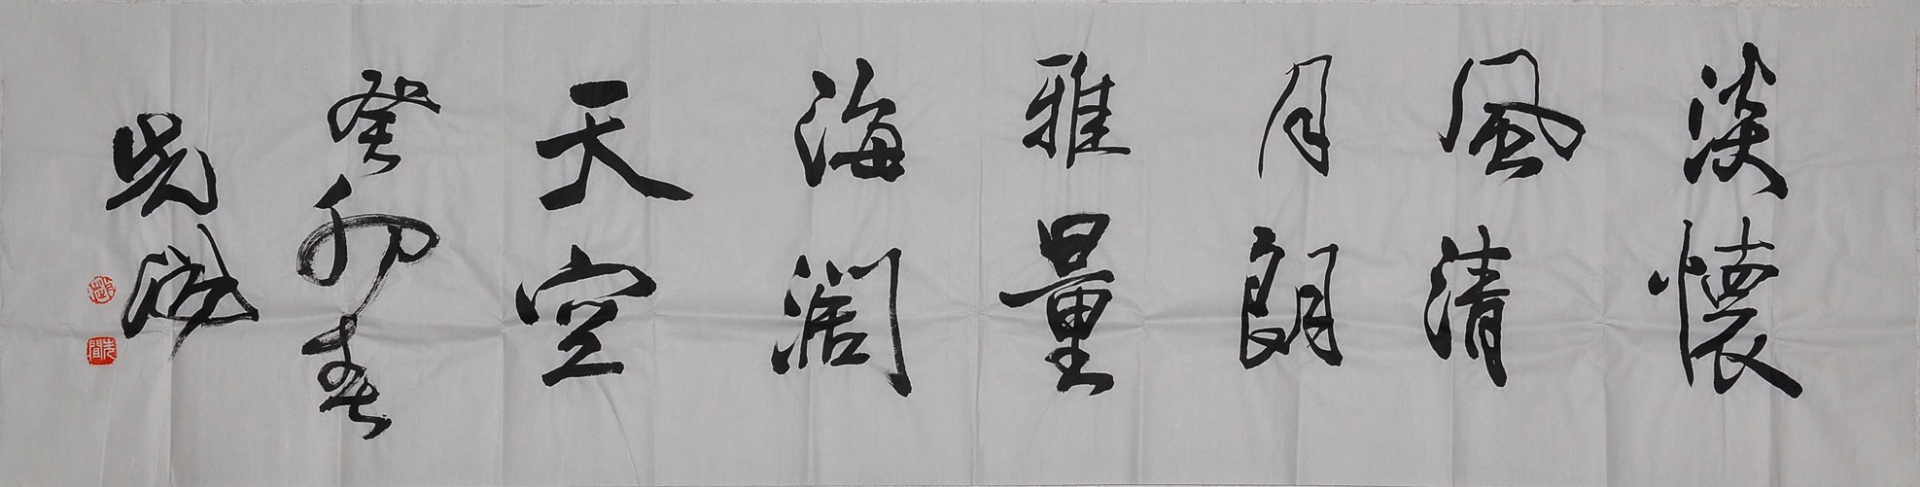 淡懷
風清
月朗
雅量
海阔
天空
癸卯春
先聞